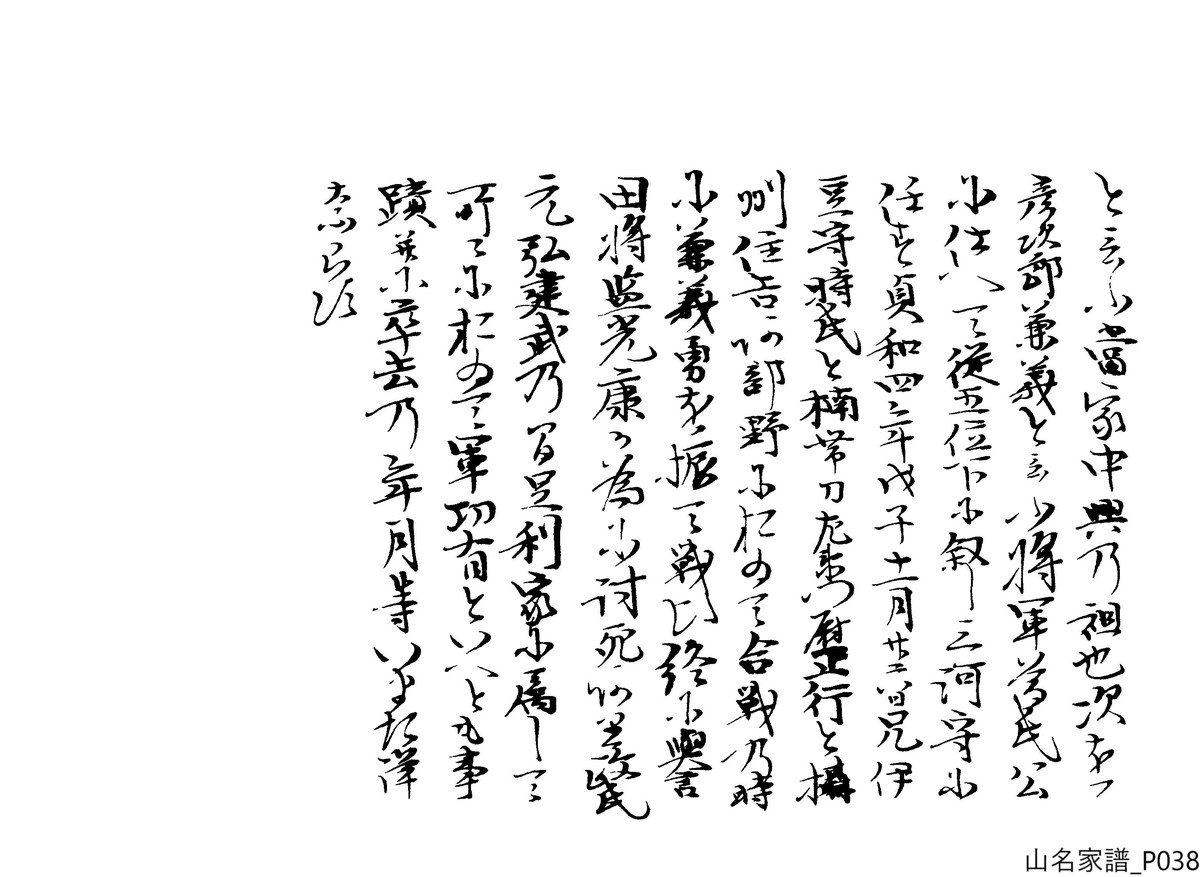 と云ふ當家中興乃祖也次を
彦次郎兼義と云ふ將軍尊氏公
に仕へて從五位下に叙し三河守に
任す貞和四年戊子十一月廿六日兄伊
豆守時氏と楠帶刀左衛門尉正行と攝
州住吉阿部野に於ゐて合戰乃時
に兼義勇を振て戰ひ終に與吉
田將監光康か為に討死
元弘建武乃間足利家に屬して
所々に於ゐて軍功有といへとも事
蹟并に卒去乃年月等いまた詳
ならす
山名家譜_P038